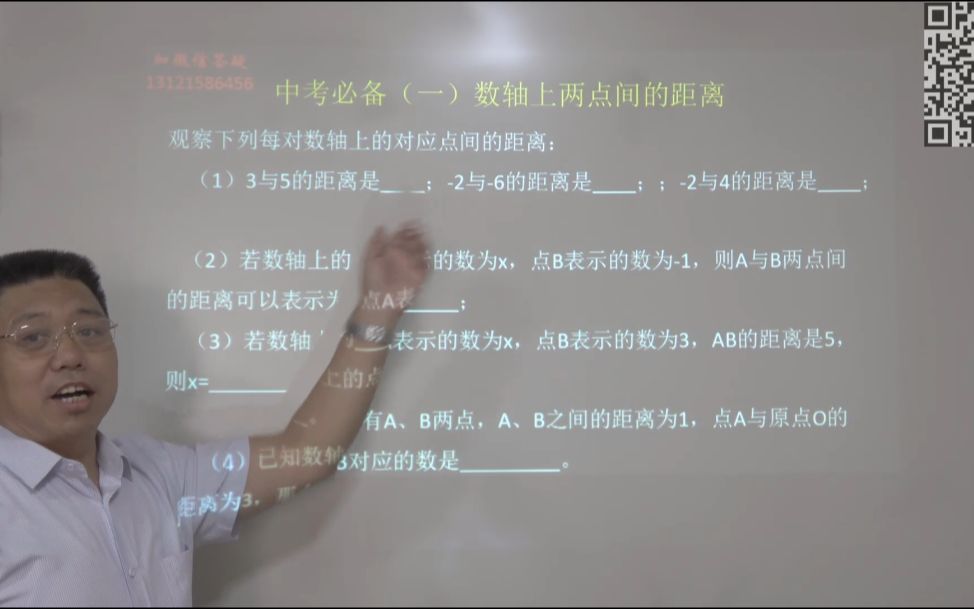 加微信答疑
13121586456
中考必备（一）数轴上两点间的距离
观察下列每对数轴上的对应点间的距离：
（1）3与5的距离是____；-2与-6的距离是____；；-2与4的距离是____；
（2）若数轴上的 示的数为x，点B表示的数为-1，则A与B两点间
的距离可以表示为 点A表_____；
（3）若数轴 表示的数为x，点B表示的数为3，AB的距离是5，
则x=_______ 上的点
有A、B两点，A、B之间的距离为1，点A与原点O的
（4）已知数轴 B对应的数是_________。
距离为3，